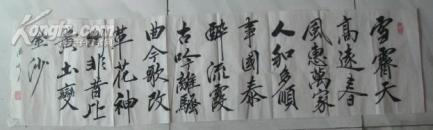 雪霽天
高遠春
風惠萬家
人和多順
事國泰
醉流霞
古吟離騷
曲今歌改
革花神
州非昔比
土變
金沙